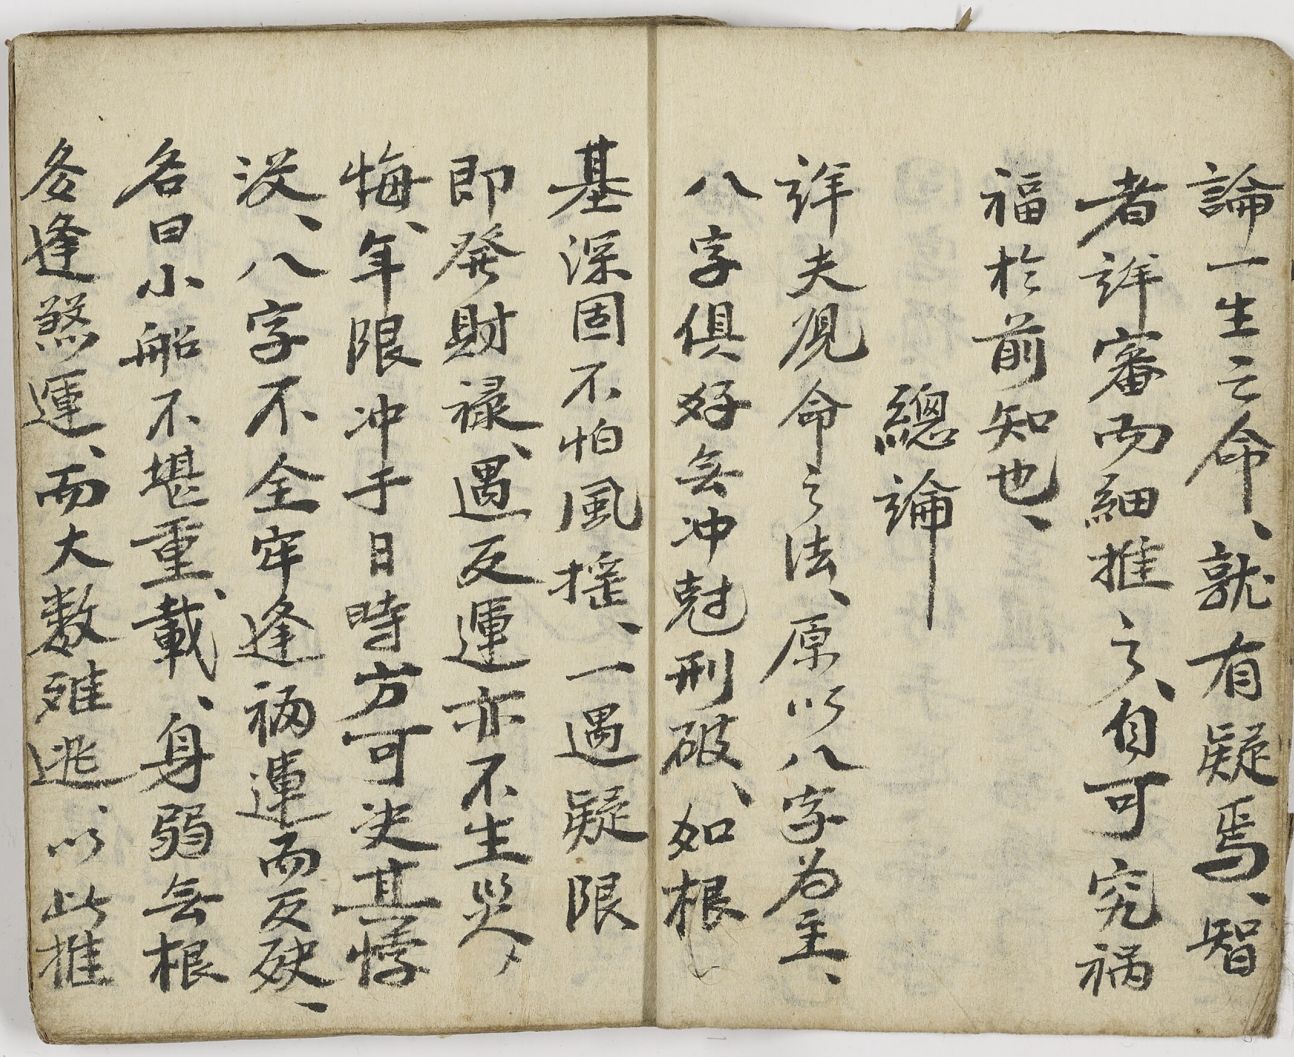 論一生之命、就有疑焉、智
者詳審而細推之、自可究禍
福於前知也、
總論
詳夫观命之法、原以八字为主、
八字俱好無冲尅刑破、如根
基深固不怕風搖、一遇疑限
即発財禄、遇反運亦不生災、
悔、年限冲于日時方可决其悖
没、八字不全牢逢禍運而反殃、
名曰小船不堪重載、身弱無根
各逢煞運、而大数难逃、以此推